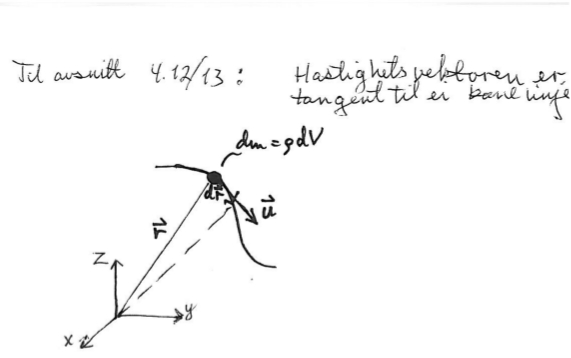 Til avsnitt 4.12/13 : Hastighetsvektoren er
tangent til er banelinje
dm = ρdV
dr⃗
u⃗
r⃗
z
y
x